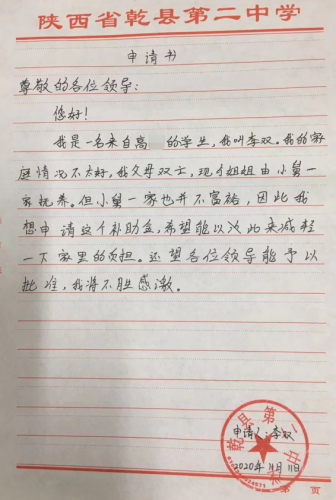 陕西省乾县第二中学
申请书
尊敬的各位领导:
您好!
我是一名来自高 的学生,我叫李双。我的家
庭情况不太好。我父母双亡,现今姐姐由小舅一
家抚养。但小舅一家也并不富裕,因此我
想申请这个补助金,希望能以次此来减轻
一下家里的负担。还望各位领导能予以
批准,我将不胜感激。
申请人:李双
2020年11月11日
乾县第二中学
页